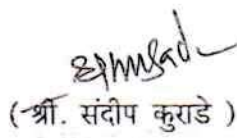 ( श्री. संदीप कुराडे )